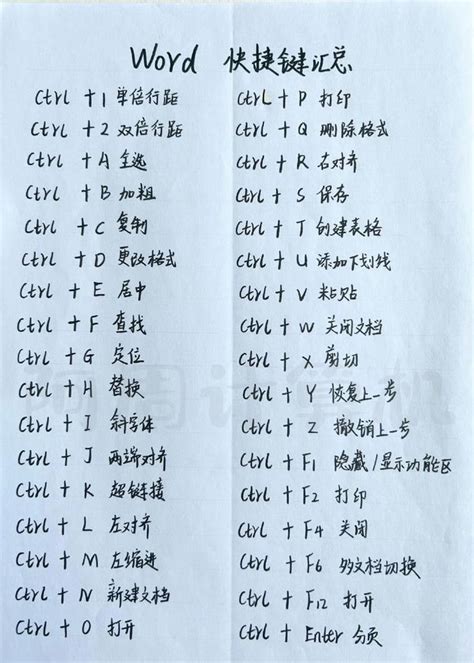 Word 快捷键汇总
Ctrl + 1 单倍行距
Ctrl + 2 双倍行距
Ctrl + A 全选
Ctrl + B 加粗
Ctrl + C 复制
Ctrl + D 更改格式
Ctrl + E 居中
Ctrl + F 查找
Ctrl + G 定位
Ctrl + H 替换
Ctrl + I 斜字体
Ctrl + J 两端对齐
Ctrl + K 超链接
Ctrl + L 左对齐
Ctrl + M 左缩进
Ctrl + N 新建文档
Ctrl + O 打开
Ctrl + P 打印
Ctrl + Q 删除格式
Ctrl + R 右对齐
Ctrl + S 保存
Ctrl + T 创建表格
Ctrl + U 添加下划线
Ctrl + V 粘贴
Ctrl + W 关闭文档
Ctrl + X 剪切
Ctrl + Y 恢复上一步
Ctrl + Z 撤销上一步
Ctrl + F1 隐藏/显示功能区
Ctrl + F2 打印
Ctrl + F4 关闭
Ctrl + F6 多文档切换
Ctrl + F12 打开
Ctrl + Enter 分页